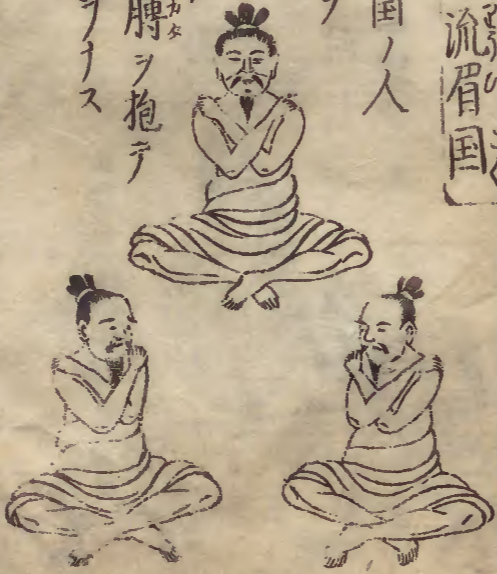 流眉国
国ノ人
膊ヲ抱テ
ヲナス